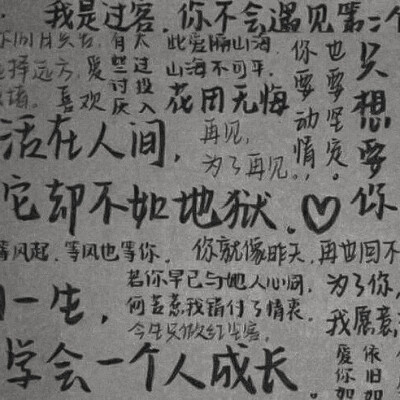 我是过客.你不会遇见第二个
有太
些过
讨投
厌入
此爱隔山海,
山海不可平.
花用无悔
你也
要要
动坚
情定
只想要你
择远方.爱
喜欢
活在人间,
再见,
为了再见.
它却不如地狱.♡
等风起.等风也等你.
你就像昨天,再也回不
若你早已与她人心同,
何苦惹我错付了情衷
今生只做红尘客,
为了你,
我愿意
一生,
学会一个人成长.
爱你如
依旧如